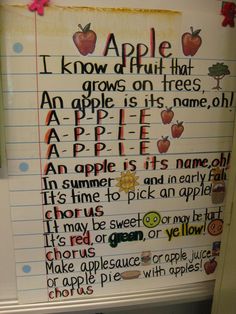 Apple
I know a fruit that
grows on trees,
An apple is its name, oh!
A-P-P-L-E
A-P-P-L-E
A-P-P-L-E
An apple is its name, oh!
In summer and in early fall
It's time to pick an apple!
chorus
It may be sweet or may be tart
It's red, or green, or yellow!
chorus
Make applesauce or apple juice
or apple pie with apples!
chorus